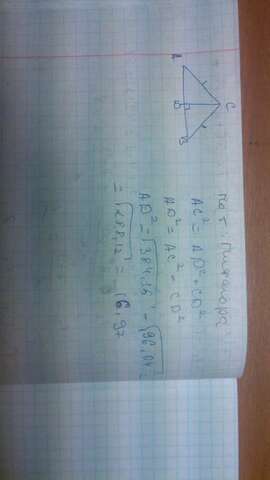 C
A
D
B
По т. Пифагора:
AC² = AD² + CD²
AD² = AC² - CD²
AD² = √384,16 - √96,04 =
= √288,12 = 16,97